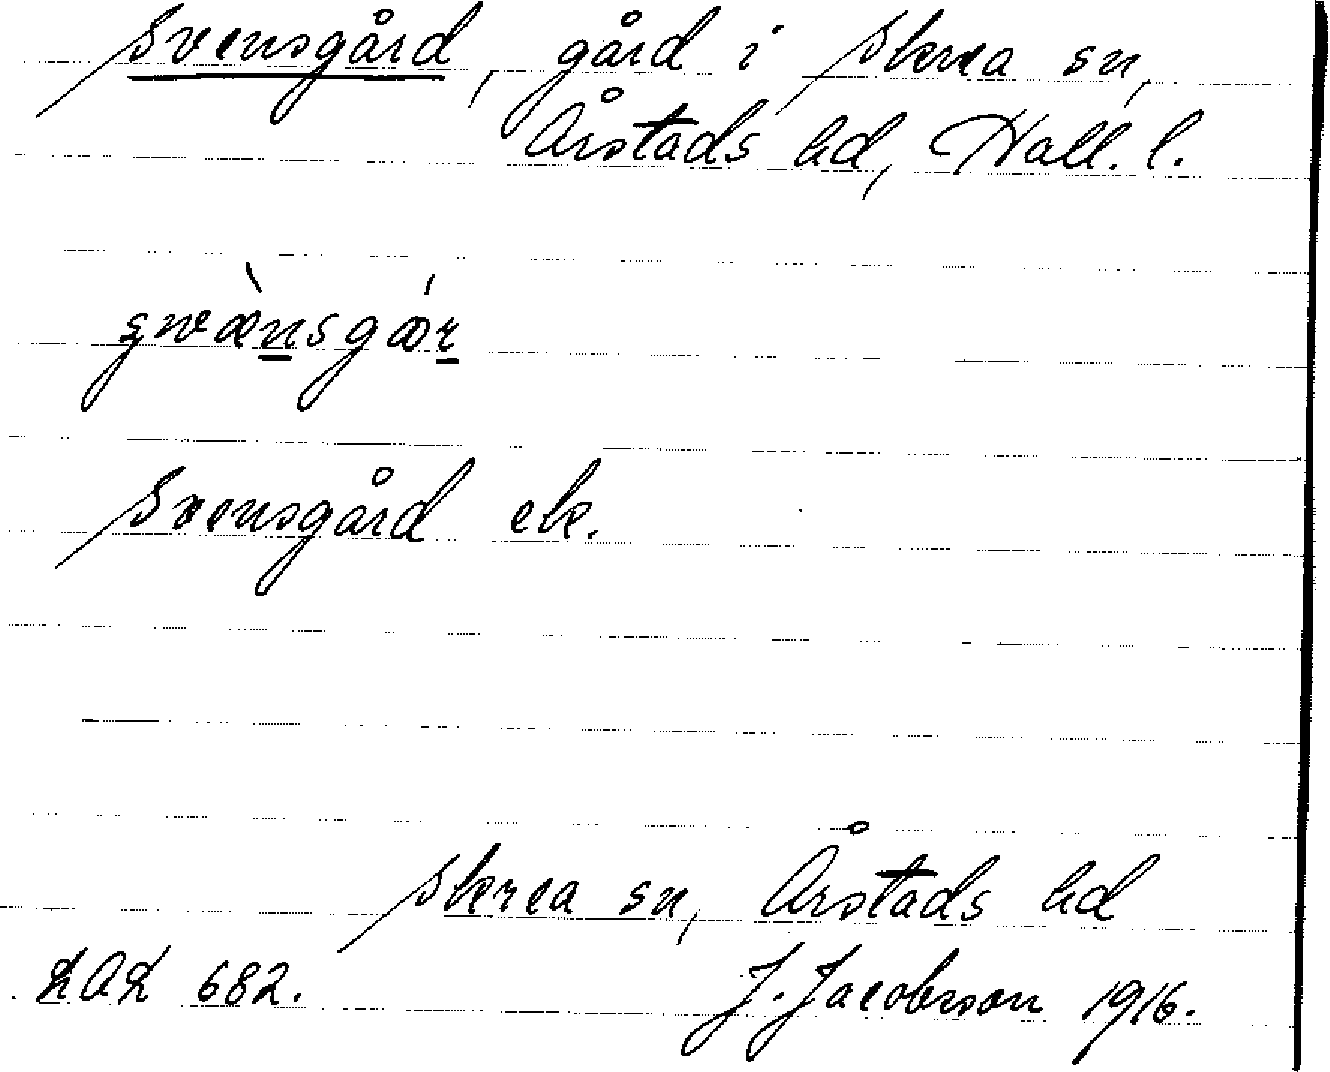 Svensgård, gård i Skrea sn,
Årstads hd, Hall. l.
swænsgår
Svensgård ek.
Skrea sn, Årstads hd
LAL 682.
J. Jacobsson 1916.